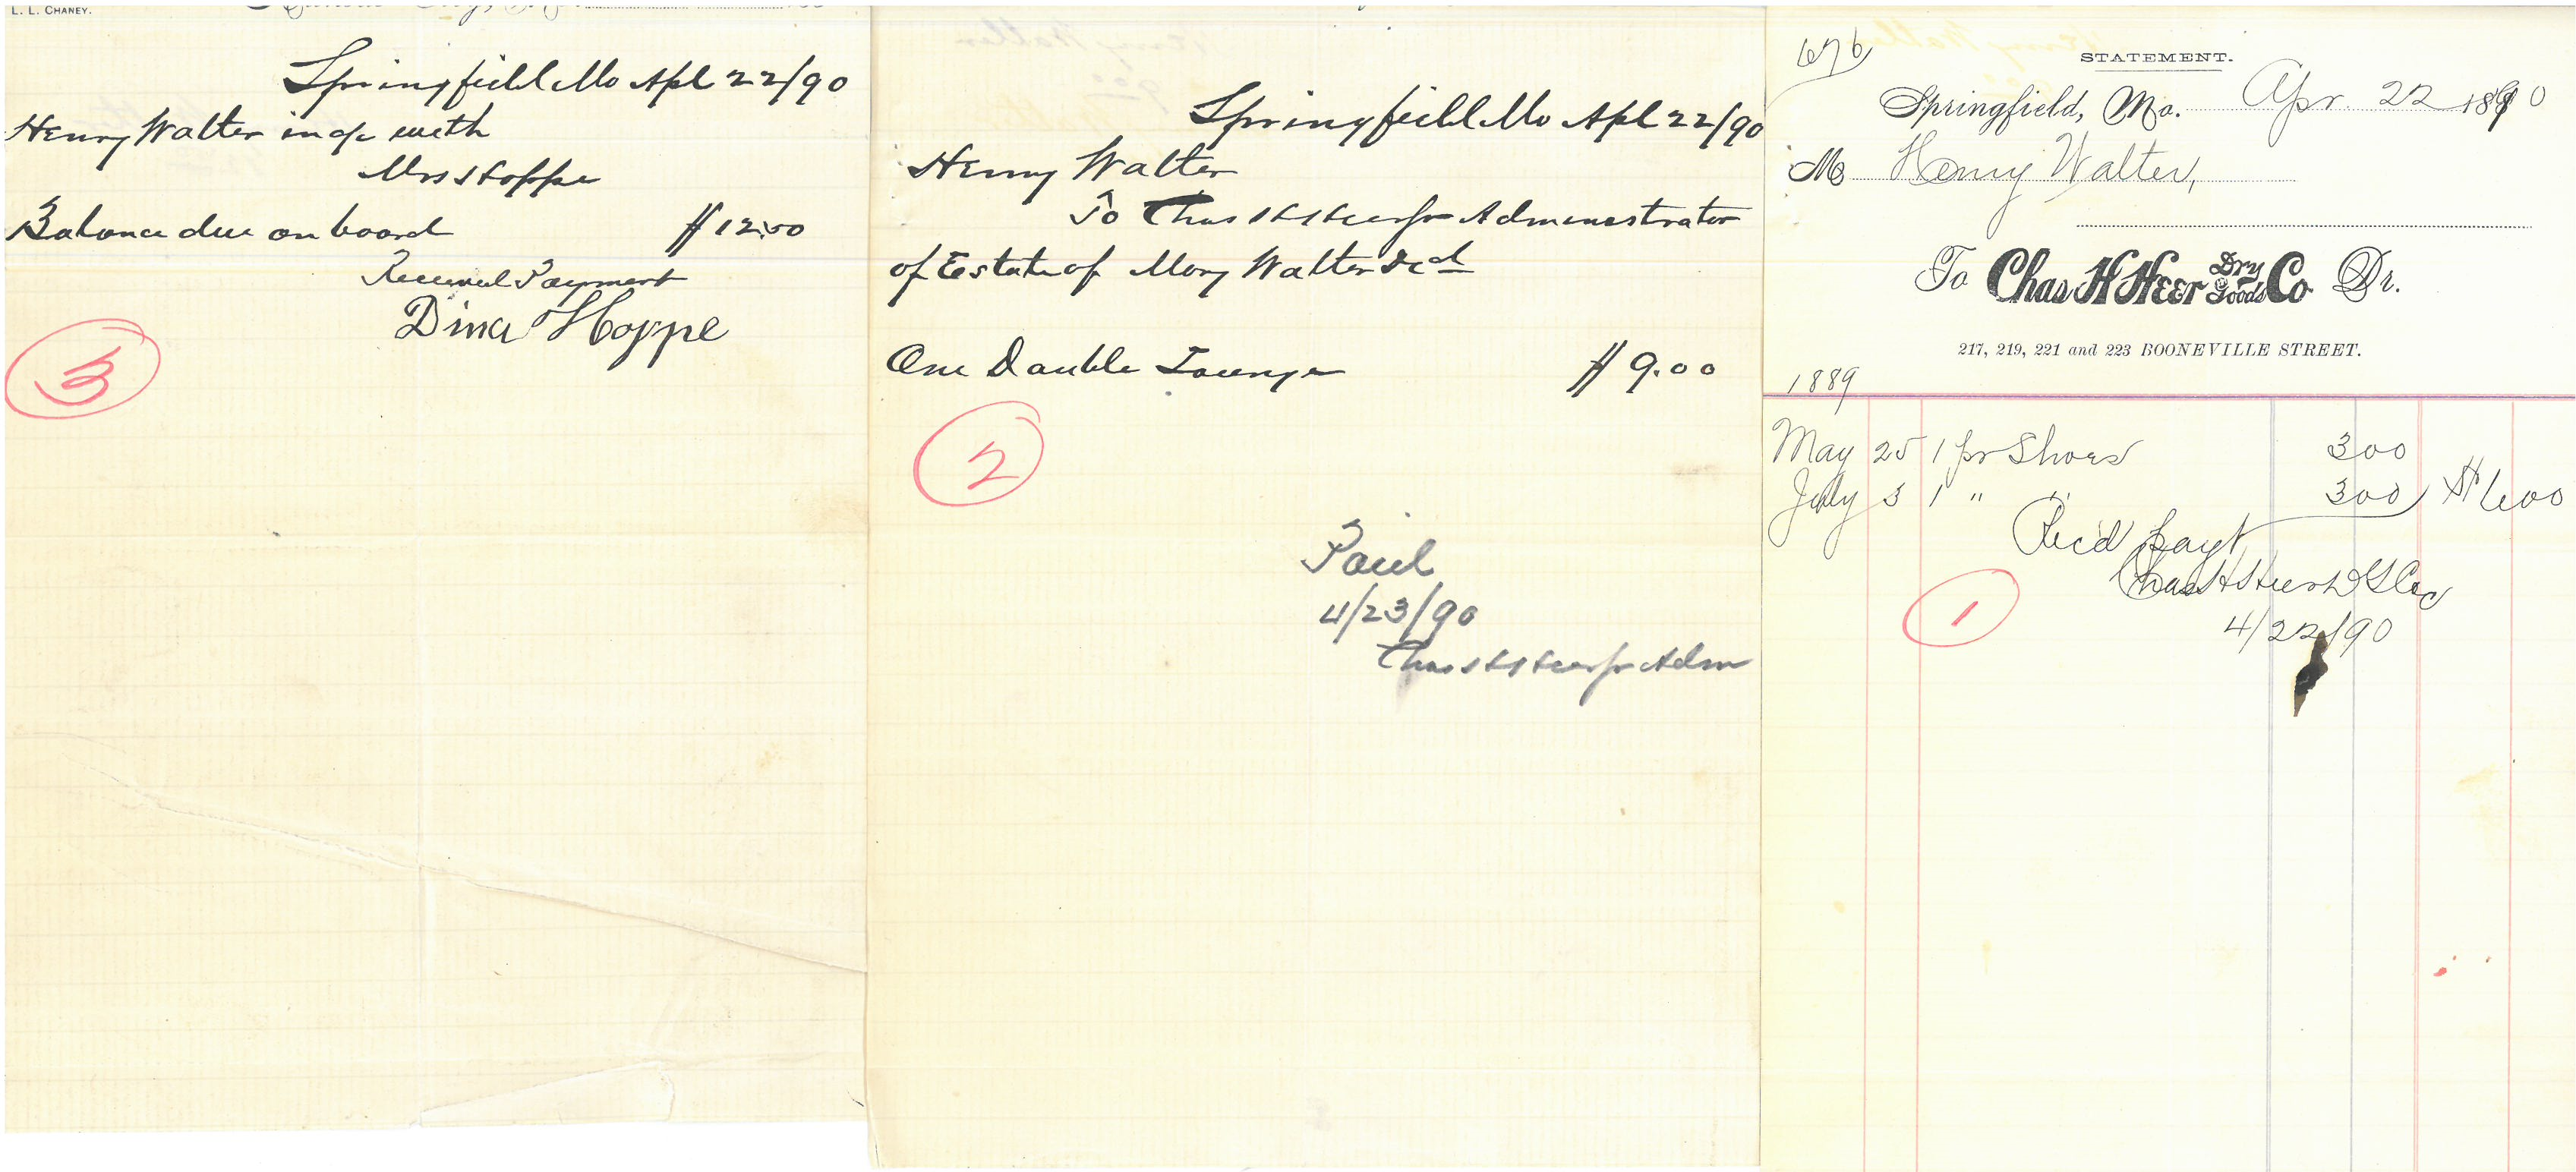 L. L. CHANEY.
Springfield Mo Apl 22/90
Henry Walter in a/c with
Mrs Hoppe
Balance due on board $12.50
Received Payment
Dina Hoppe
3
Springfield Mo Apl 22/90
Henry Walter
To Chas H Heer Jr Administrator
of Estate of Mary Walter Decd
One Double Lounge $9.00
2
Paid
4/23/90
Chas H Heer Jr Adm
676
STATEMENT.
Springfield, Mo. Apr. 22 1890
M Henry Walter,
To Chas H Heer Dry Goods Co Dr.
217, 219, 221 and 223 BOONEVILLE STREET.
1889
May 25 1 pr Shoes 300
July 3 1 " " 300 $600
Rec'd payt
Chas H Heer D G Co
4/22/90
1